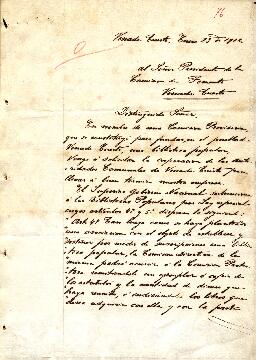 76
Venado Tuerto, Enero 23 de 1912
Al Señor Presidente de la
Comision de Fomento
Venado Tuerto
Distinguido Señor:
En nombre de una Comision Provisoria
que se constituyó para fundar en el pueblo de
Venado Tuerto, una biblioteca popular,
vengo á solicitar la cooperacion de las Auto-
ridades Comunales de Venado Tuerto para
llevar á buen término nuestra empresa.
El Superior Gobierno Nacional subvenciona
á las Bibliotecas Populares por Ley cuyos
artículos 4º y 5º disponen lo siguiente:
Art. 4º Tan luego como se haya planteado
una asociacion con el objeto de establecer y
sostener por medio de suscripciones una Biblio-
teca popular, la Comision directiva de la
misma podrá acudir á la Comision Protec-
tora remitiendole un ejemplar ó copia de
los estatutos y la cantidad de dinero que
haya reunido, é indicandole los libros que
desea adquirir con ella y con la parte